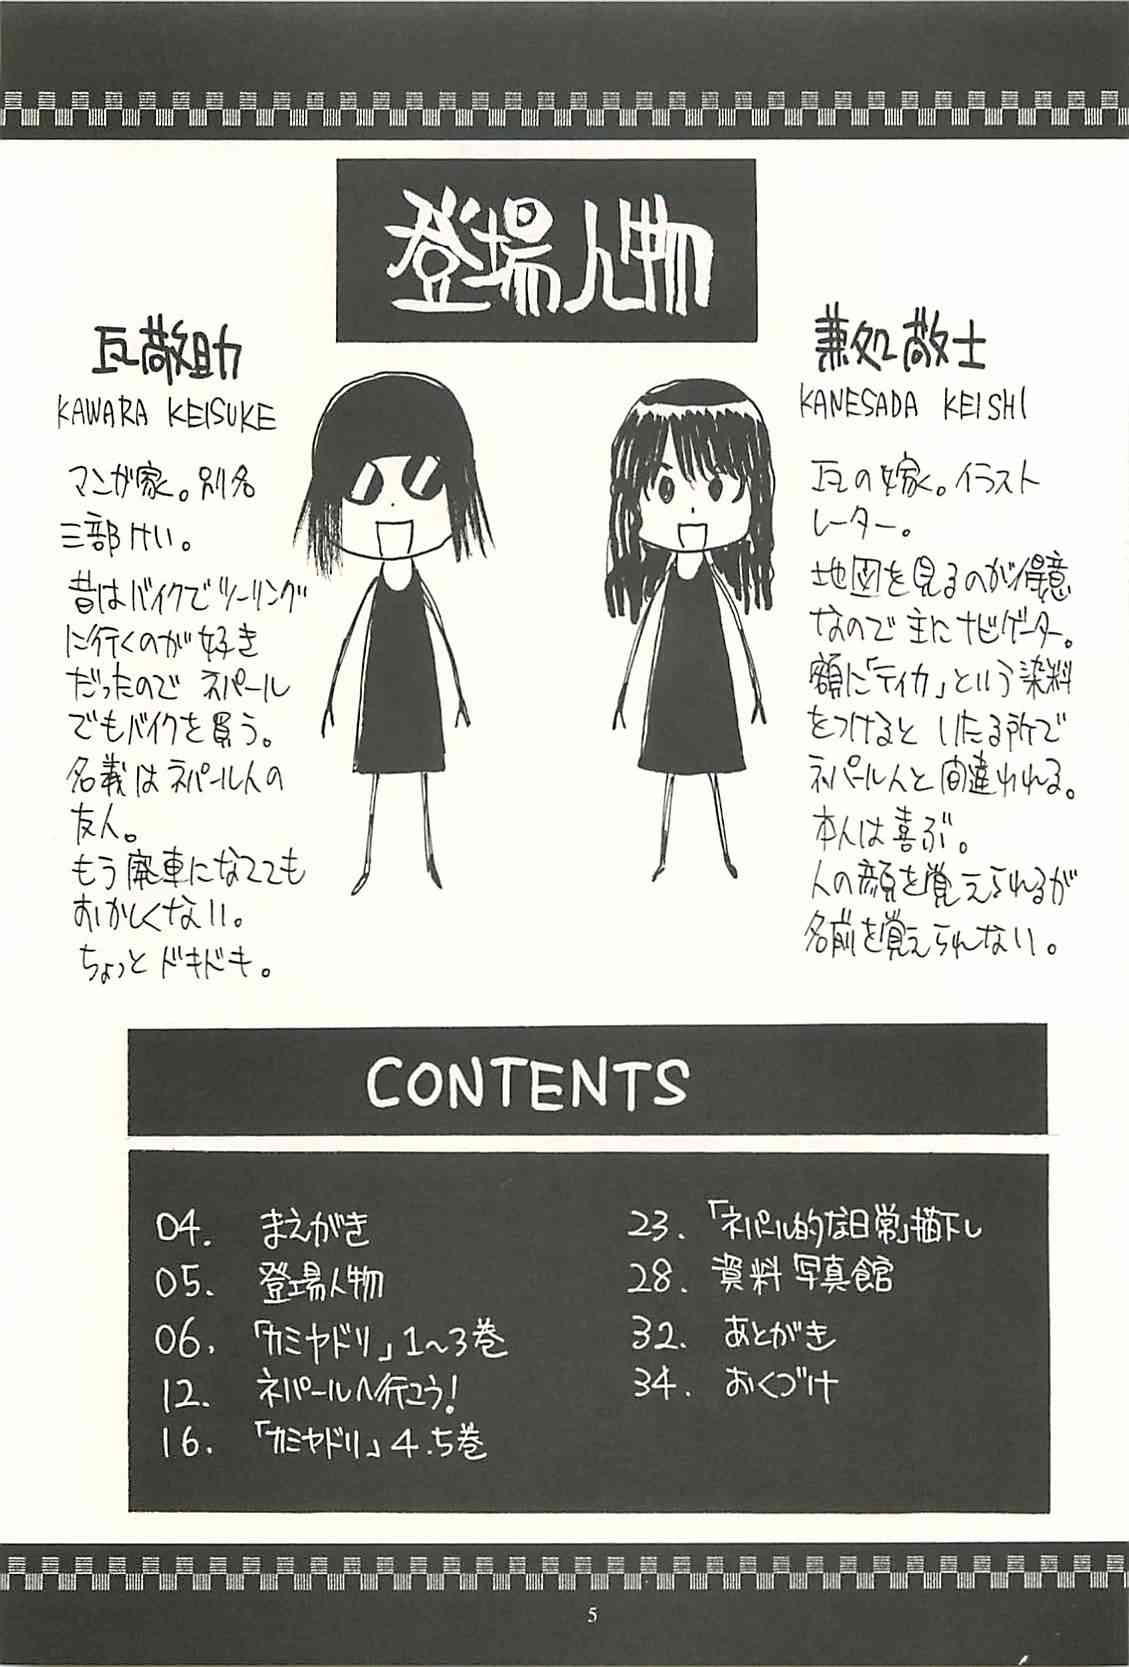 登場人物
瓦敬助
KAWARA KEISUKE
マンガ家。別名
三部けい。
昔はバイクでツーリング
に行くのが好き
だったので ネパール
でもバイクを買う。
名義はネパール人の
友人。
もう廃車になってても
おかしくない。
ちょっと ドキドキ。
兼処敬士
KANESADA KEISHI
瓦の嫁。イラスト
レーター。
地図を見るのが得意
なので 主に ナビゲーター。
額に「ティカ」という染料
をつけると いたる所で
ネパール人と間違われる。
本人は喜ぶ。
人の顔を覚えられるが
名前を覚えられない。
CONTENTS
04. まえがき
05. 登場人物
06. 「カミヤドリ」1〜3巻
12. ネパールへ行こう!
16. 「カミヤドリ」4.5巻
23. 「ネパール的な日常」描下し
28. 資料写真館
32. あとがき
34. おくづけ
5